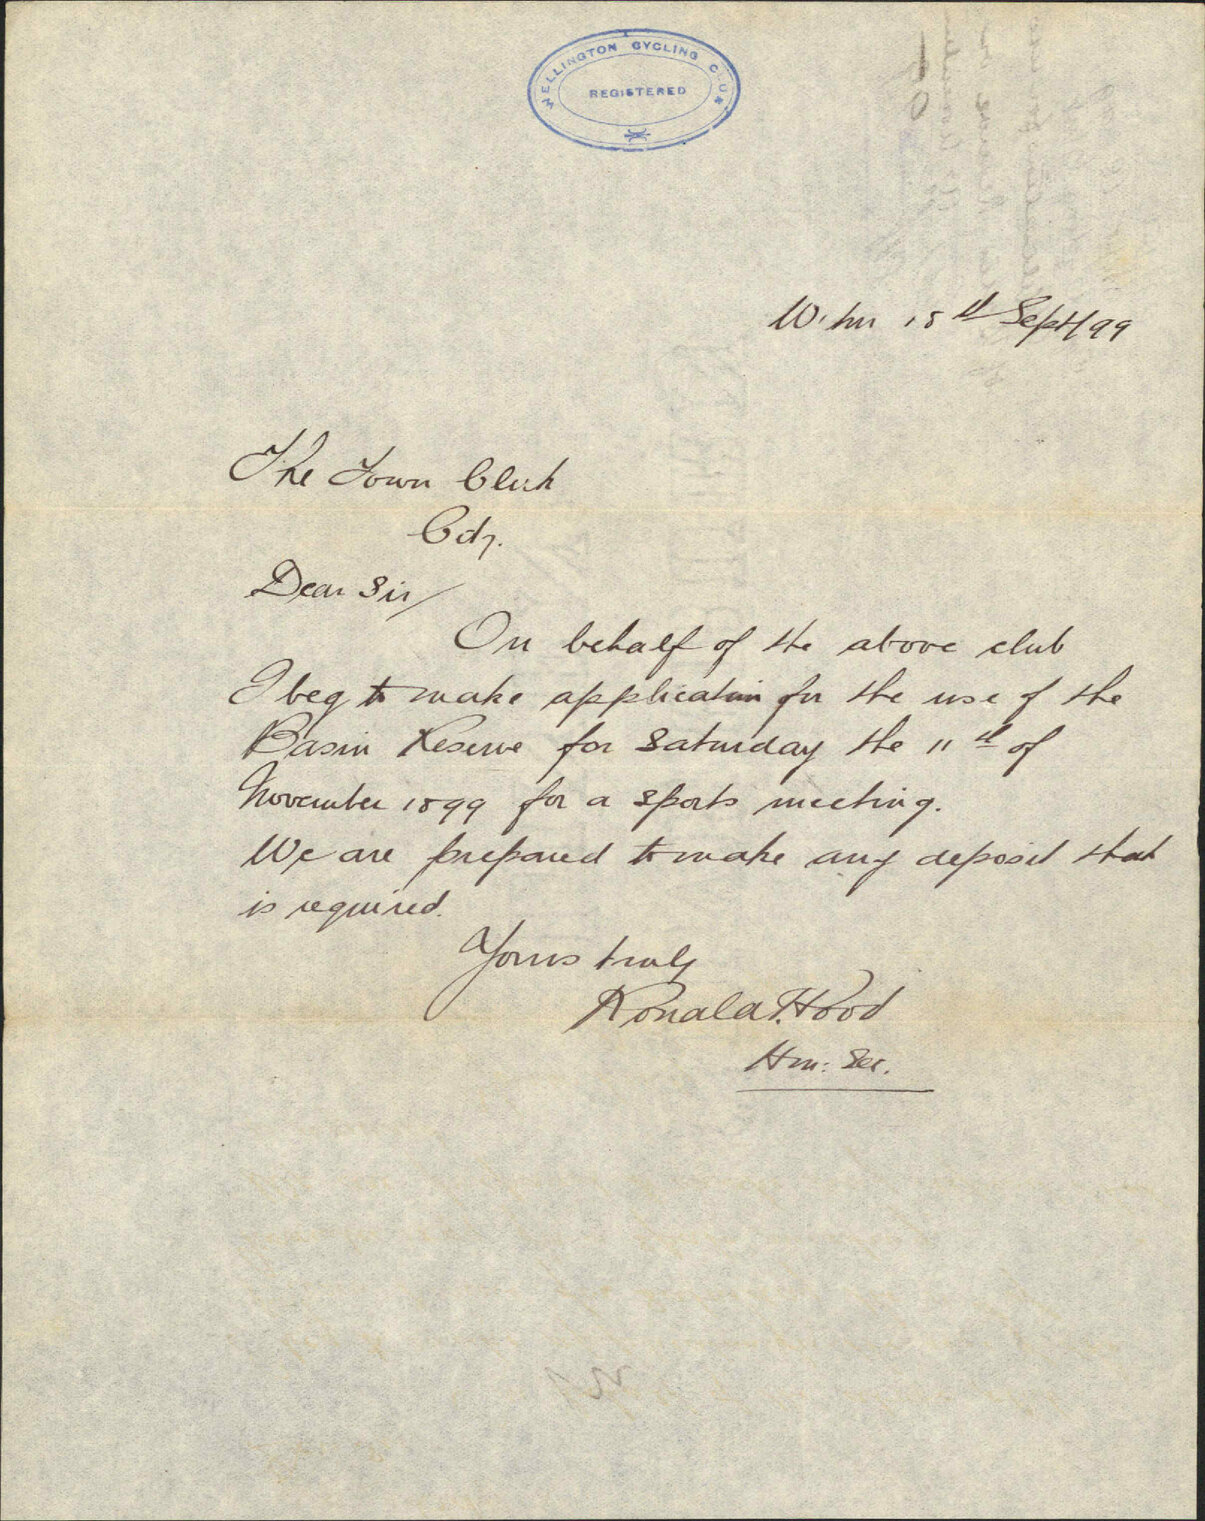 WELLINGTON CYCLING CLUB
REGISTERED
W'tn 18th Sept/99
The Town Clerk
City.
Dear Sir/
On behalf of the above club
I beg to make application for the use of the
Basin Reserve for Saturday the 11th of
November 1899 for a sports meeting.
We are prepared to make any deposit that
is required.
Yours truly
Ronald T. Hood
Hon: Sec.